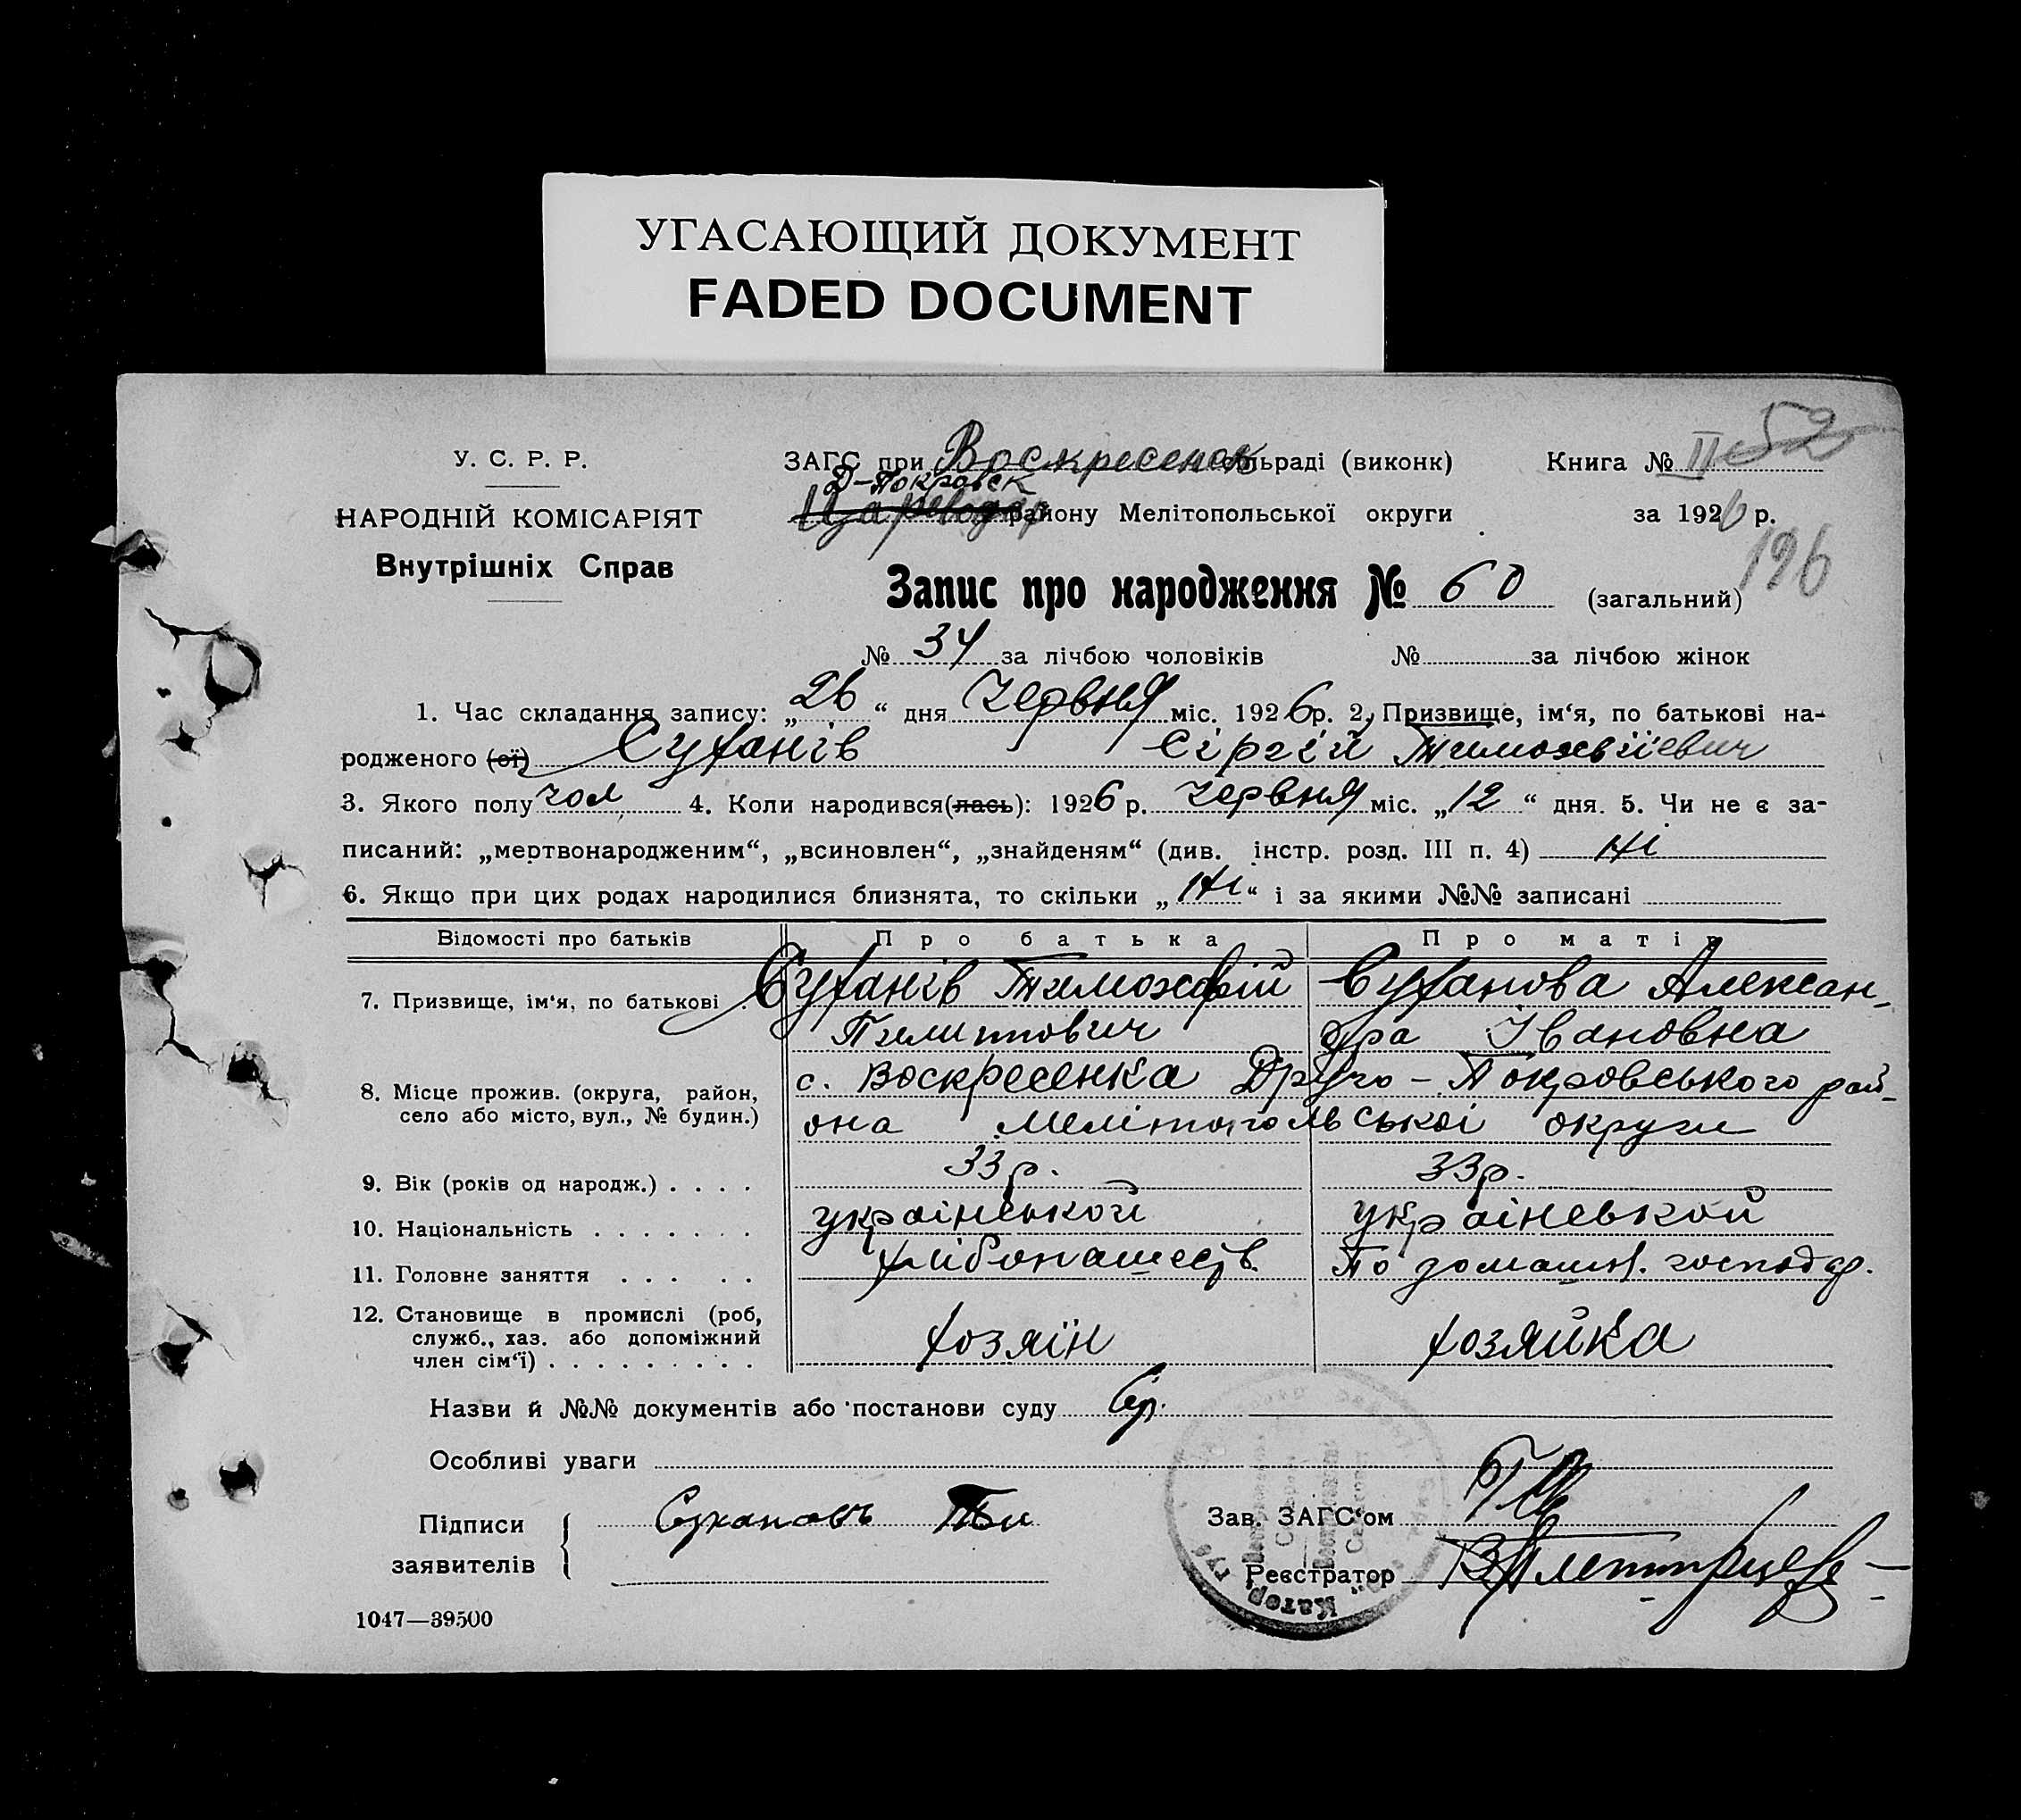 УГАСАЮЩИЙ ДОКУМЕНТ
FADED DOCUMENT
52
У. С. Р. Р.
ЗАГС при Воскресенск сільраді (виконк)
Книга № II
Д-Покровск
НАРОДНІЙ КОМІСАРІЯТ
Цареводар району Мелітопольської округи
за 1926 р.
196
Внутрішніх Справ
Запис про народження № 60 (загальний)
№ 34 за лічбою чоловіків
№ за лічбою жінок
1. Час складання запису: „26“ дня Червня міс. 1926 р. 2, Призвище, ім‘я, по батькові на-
родженого (ої) Суханів Сіргій Тимохвіїевич
3. Якого полу чол 4. Коли народився(лась): 1926 р. Червня міс. „12“ дня. 5. Чи не є за-
писаний: „мертвонародженим“, „всиновлен“, „знайденям“ (див. інстр. розд. III п. 4) ні
6. Якщо при цих родах народилися близнята, то скільки „ні“ і за якими №№ записані
Відомості про батьків
Про батька
Про матір
7. Призвище, ім‘я, по батькові
Суханів Тимохфій
Суханова Алексан-
Пилиппович
дра Івановна
8. Місце прожив. (округа, район,
село або місто, вул., № будин.)
с. Воскресенка Друго-Покровського рай-
она Мелітопольскої округи
9. Вік (років од народж.) . . . .
33 р.
33 р.
10. Національність . . . . . . .
української
української
11. Головне заняття . . . . .
хлібопашеств.
По домашн. господ.
12. Становище в промислі (роб,
служб., хаз. або допоміжний
член сім‘ї) . . . . . . . . .
хозяїн
хозяйка
Назви й №№ документів або постанови суду
Особливі уваги
Підписи
заявителів
Сухановъ
Зав. ЗАГС‘ом
Реєстратор
1047—39500